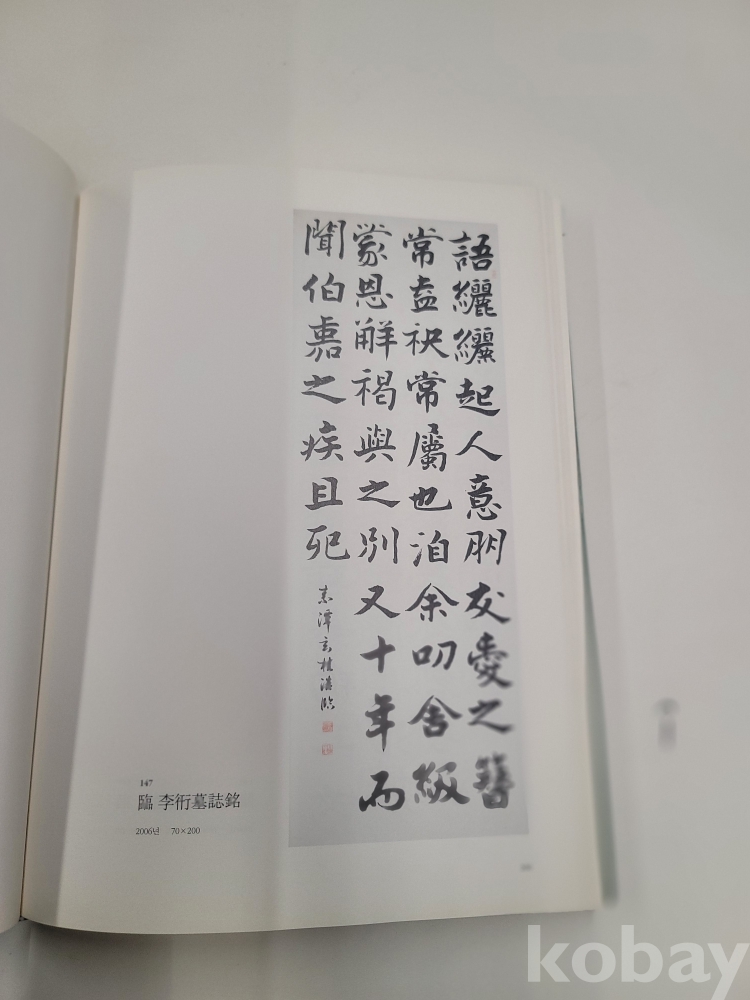 語纚纚起人意朋友愛之簪
常盍袂常屬也泊余叨舍級
蒙恩觧褐與之別又十年而
聞伯嘉之疾且死
潭玄桂 臨
147
臨 李衎墓誌銘
2006년 70×200
kobay